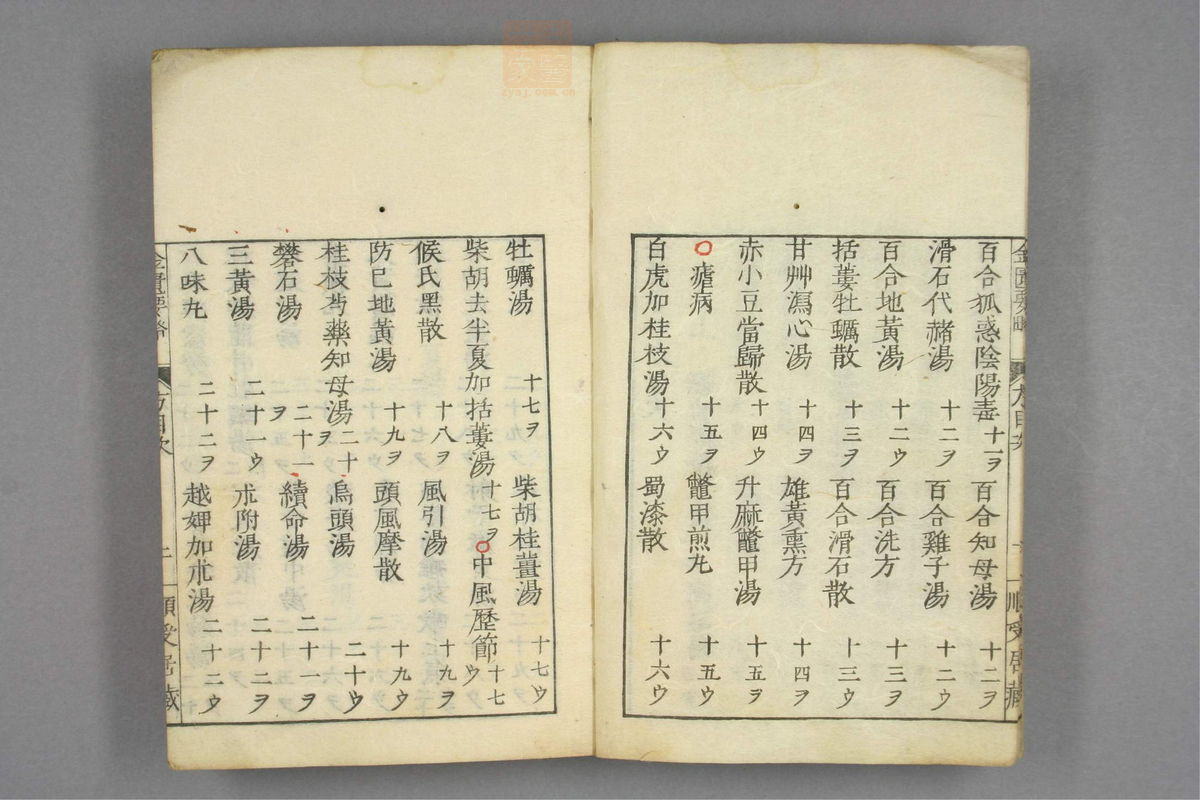 百合狐惑陰陽毒 十一ヲ 百合知母湯 十二ヲ
滑石代赭湯 十二ヲ 百合雞子湯 十二ウ
百合地黃湯 十二ウ 百合洗方 十三ヲ
括蔞牡蠣散 十三ヲ 百合滑石散 十三ウ
甘艸瀉心湯 十四ヲ 雄黃熏方 十四ヲ
赤小豆當歸散 十四ウ 升麻鼈甲湯 十五ヲ
○瘧病 十五ヲ 鼈甲煎丸 十五ウ
白虎加桂枝湯 十六ウ 蜀漆散 十六ウ
牡蠣湯 十七ヲ 柴胡桂薑湯 十七ウ
柴胡去半夏加括蔞湯 十七ヲ ○中風歷節 十七ウ
候氏黑散 十八ヲ 風引湯 十九ヲ
防已地黃湯 十九ヲ 頭風摩散 十九ウ
桂枝芍藥知母湯 二十ヲ 烏頭湯 二十ウ
礬石湯 二十一ヲ 續命湯 二十一ヲ
三黃湯 二十一ウ 朮附湯 二十二ヲ
八味丸 二十二ヲ 越婢加朮湯 二十二ウ
金匱要略 方目次 二 順受居藏
zysj.com.cn